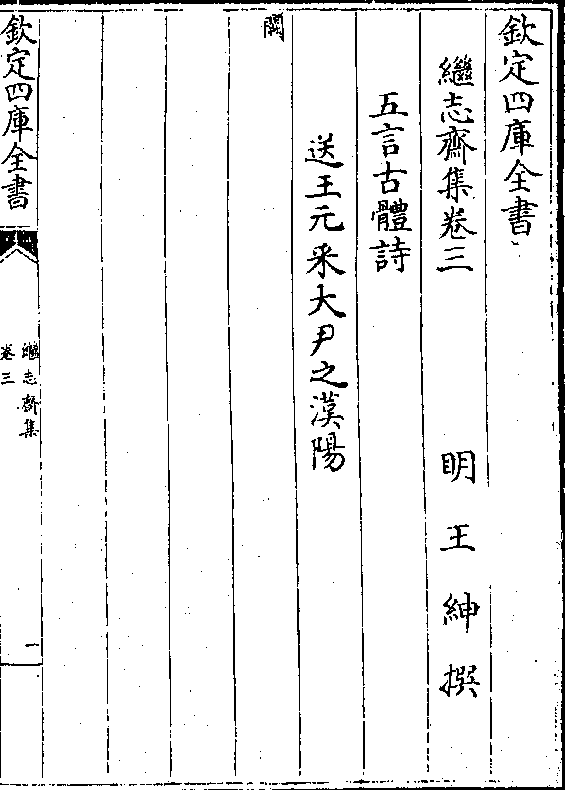 欽定四庫全書
繼志齋集卷三
明王紳撰
五言古體詩
送王元采大尹之漢陽
闕
欽定四庫全書
繼志齋集
卷三
一